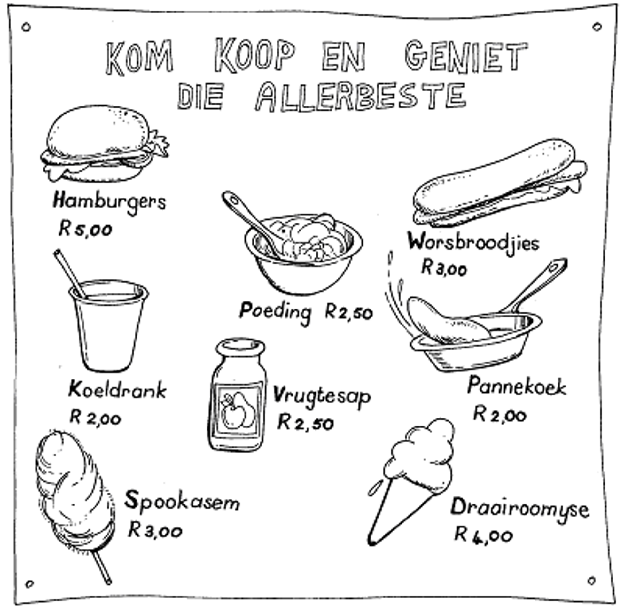 KOM KOOP EN GENIET
DIE ALLERBESTE
Hamburgers
R5,00
Worsbroodjies
R3,00
Poeding R2,50
Koeldrank
R2,00
Vrugtesap
R2,50
Pannekoek
R2,00
Spookasem
R3,00
Draairoomyse
R4,00